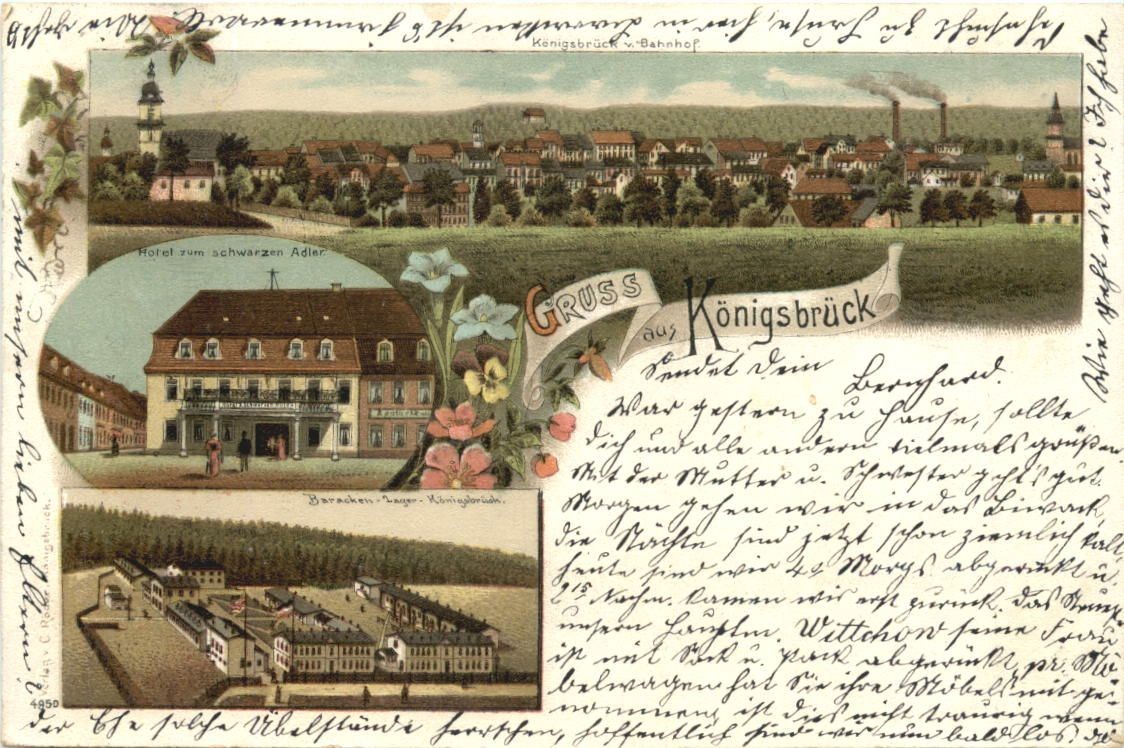 Königsbrück v. Bahnhof.
Hotel zum schwarzen Adler.
GRUSS
aus Königsbrück
Baracken-Lager-Königsbrück.
4950
Sendet Dein
Bernhard.
War gestern zu Hause, sollte
Dich und alle andern vielmals grüßen
Mit der Mutter u. Schwester geht's gut.
Morgen gehen wir in das Biwack,
die Nächte sind jetzt schon ziemlich kalt,
heute sind wir 4½ Morgs. abgerückt u.
2¹⁵ Nachm. kamen wir erst zurück. das
unsern Hauptm. Wittchow seine Frau
ist mit Sack u. Pack abgerückt, pr. Mö-
belwagen hat Sie ihre Möbels mit ge-
nommen, ist dies nicht traurig wenn
der Ehe solche Übelstände herrschen, hoffentlich sind wir nun bald los, die
mit unsern lieben Eltern?
Wie geht es Dir? Ich habe
Sehnsucht zu Hause, hier in